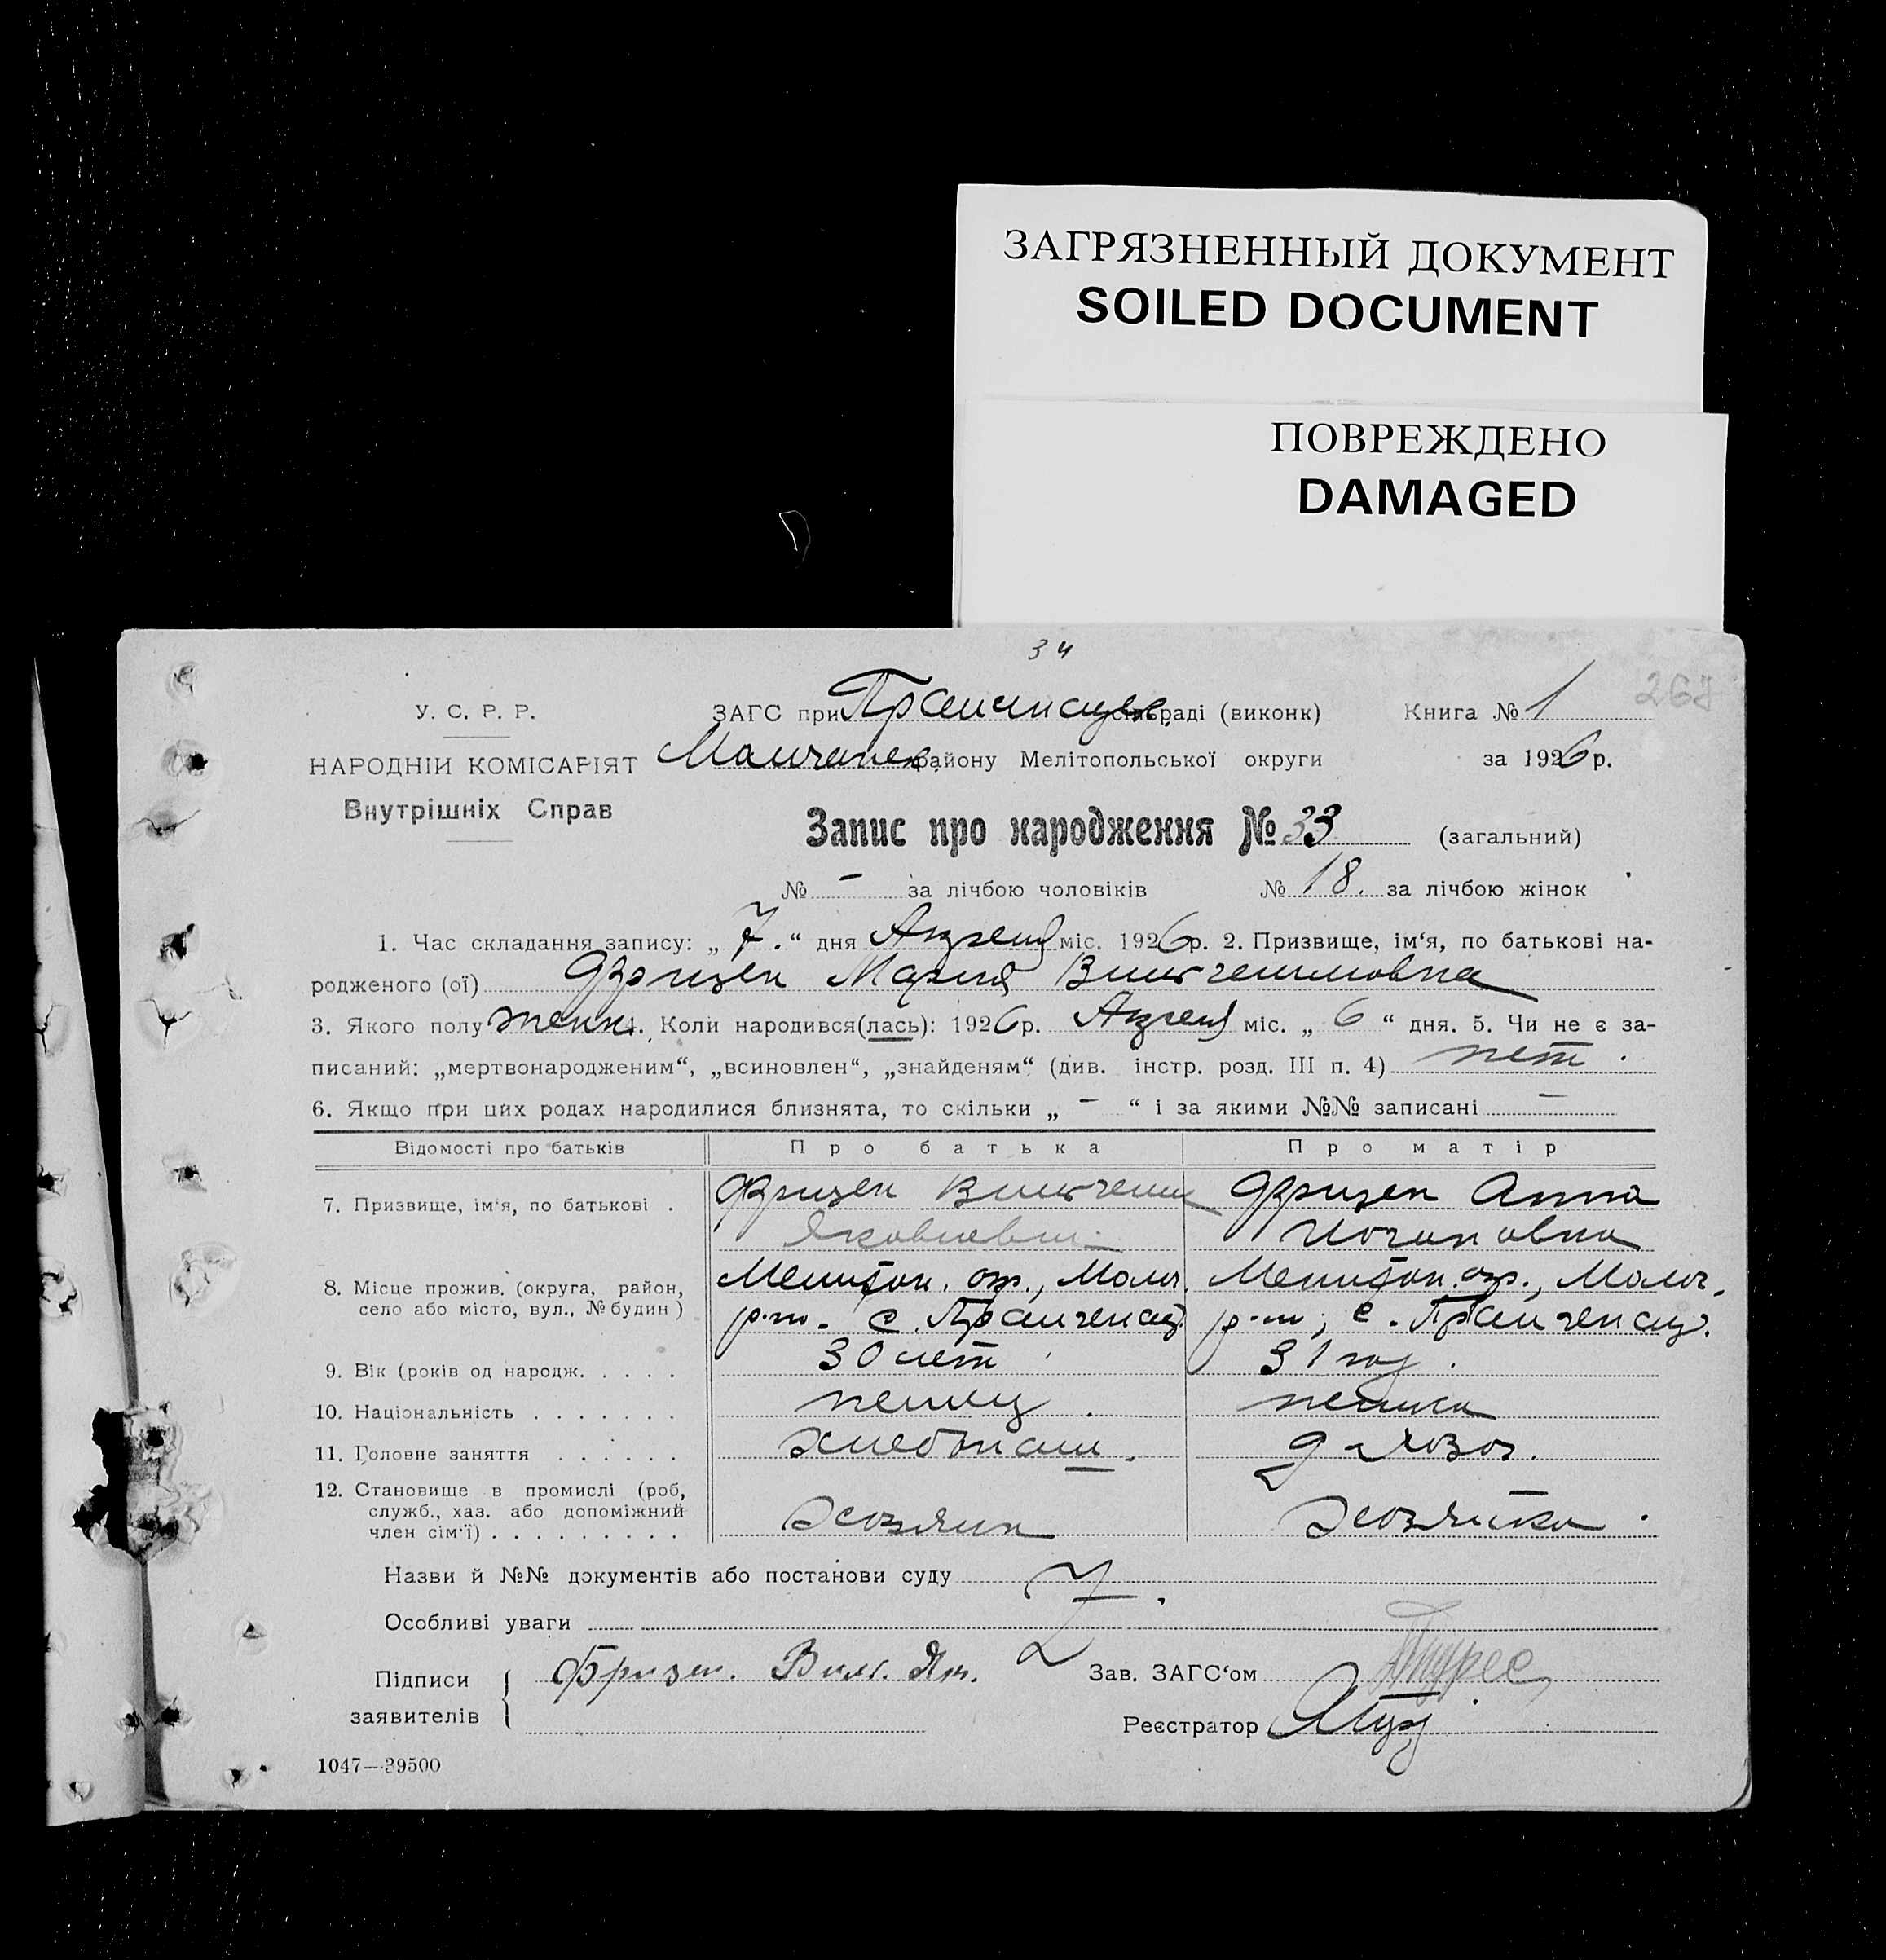 ЗАГРЯЗНЕННЫЙ ДОКУМЕНТ
SOILED DOCUMENT
ПОВРЕЖДЕНО
DAMAGED
34
267
У. С. Р. Р.
НАРОДНІЙ КОМІСАРІЯТ
Внутрішніх Справ
ЗАГС при сільраді (виконк) Книга № 1
району Мелітопольської округи за 1926 р.
Запис про народження № 33 (загальний)
№ – за лічбою чоловіків № 18. за лічбою жінок
1. Час складання запису: „ 7. “ дня Апреля міс. 1926 р. 2. Призвище, ім‘я, по батькові на-
родженого (ої) Фризен Мария Вильгельмовна
3. Якого полу женск. Коли народився(лась): 1926 р. Апреля міс. „ 6 “ дня. 5. Чи не є за-
писаний: „мертвонародженим“, „всиновлен“, „знайденям“ (див. інстр. розд. III п. 4) нет.
6. Якщо при цих родах народилися близнята, то скільки „ – “ і за якими №№ записані –
Відомості про батьків Про батька Про матір
7. Призвище, ім‘я, по батькові . Фризен Вильгельм Фризен Анна
Яковлевич Иогановна
8. Місце прожив. (округа, район, Мелитоп. окр., Молоч. Мелитоп. окр., Молоч.
село або місто, вул., № будин ) р-на. с. р-на, с.
9. Вік (років од народж. . . . . 30 лет 31 год.
10. Національність . . . . . . . немец. немка
11. Головне заняття . . . . . . хлебопаш. д. хозяй.
12. Становище в промислі (роб,
служб., хаз. або допоміжний
член сім‘ї) . . . . . . . . . хозяин хозяйка.
Назви й №№ документів або постанови суду
Особливі уваги
Підписи Фризен. Вил. Як. Зав. ЗАГС‘ом
заявителів Реєстратор
1047—39500